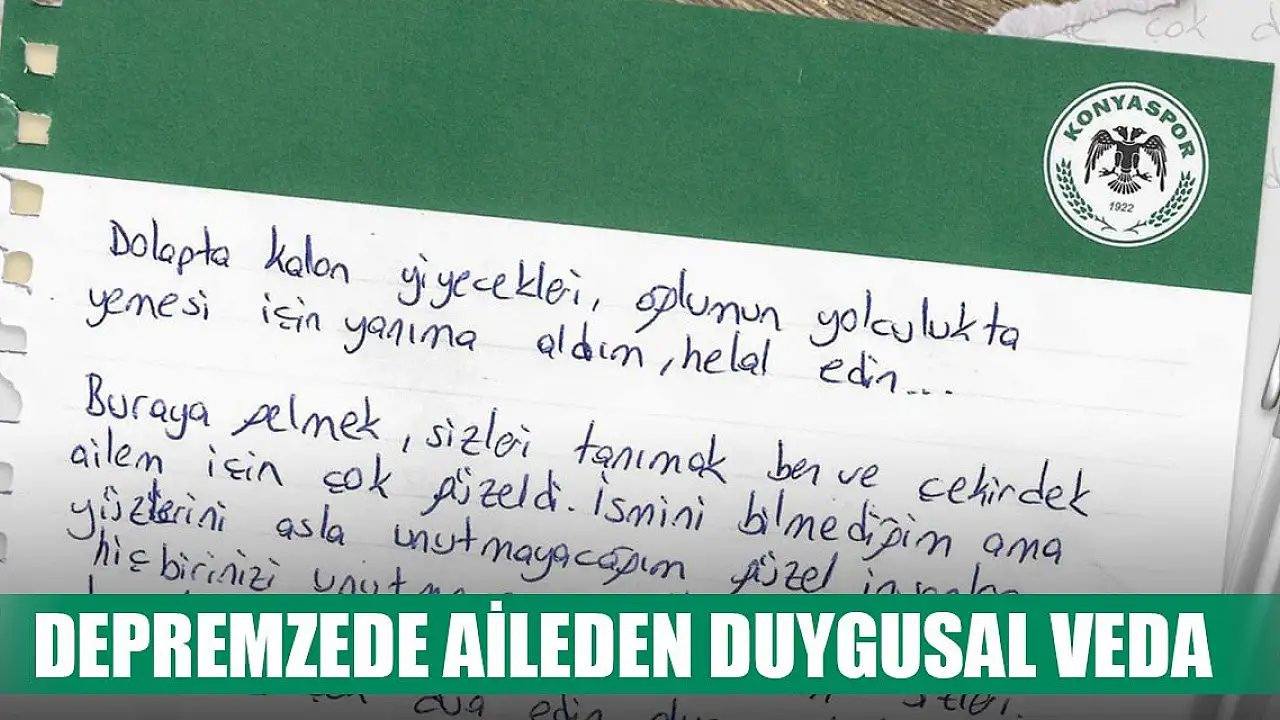 çok
KONYASPOR
1922
Dolapta kalan yiyecekleri, oğlumun yolculukta
yemesi için yanıma aldım, helal edin...
Buraya gelmek, sizleri tanımak ben ve çekirdek
ailem için çok güzeldi. İsmini bilmediğim ama
yüzlerini asla unutmayacağım güzel
hiçbirinizi
DEPREMZEDE AİLEDEN DUYGUSAL VEDA
dua edin